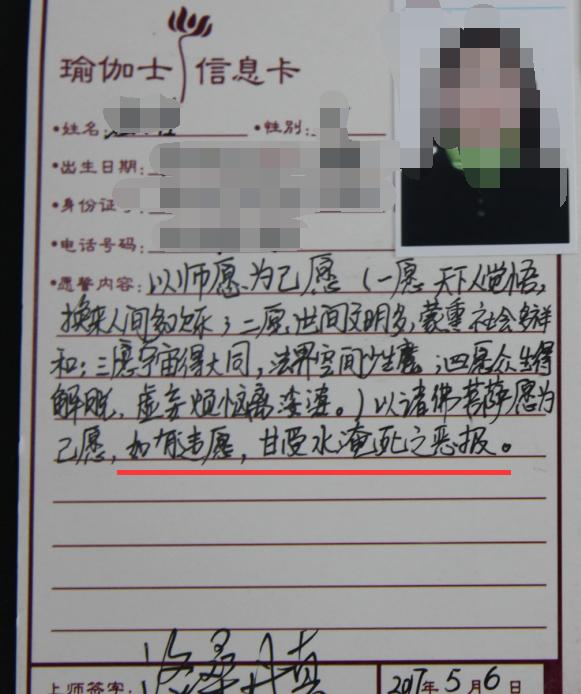 瑜伽士 信息卡
•姓名: •性别:
•出生日期:
•身份证号:
•电话号码:
•愿誓内容: 以师愿为己愿（一愿天下人觉悟,
换来人间多欢乐；二愿世间文明多,蒙熏社会多祥
和；三愿宇宙得大同,法界空间少生魔；四愿众生得
解脱,虚妄烦恼离娑婆。）以诸佛菩萨愿为
己愿,如有违愿,甘受水淹死之恶报。
上师签字: 2017年5月6日